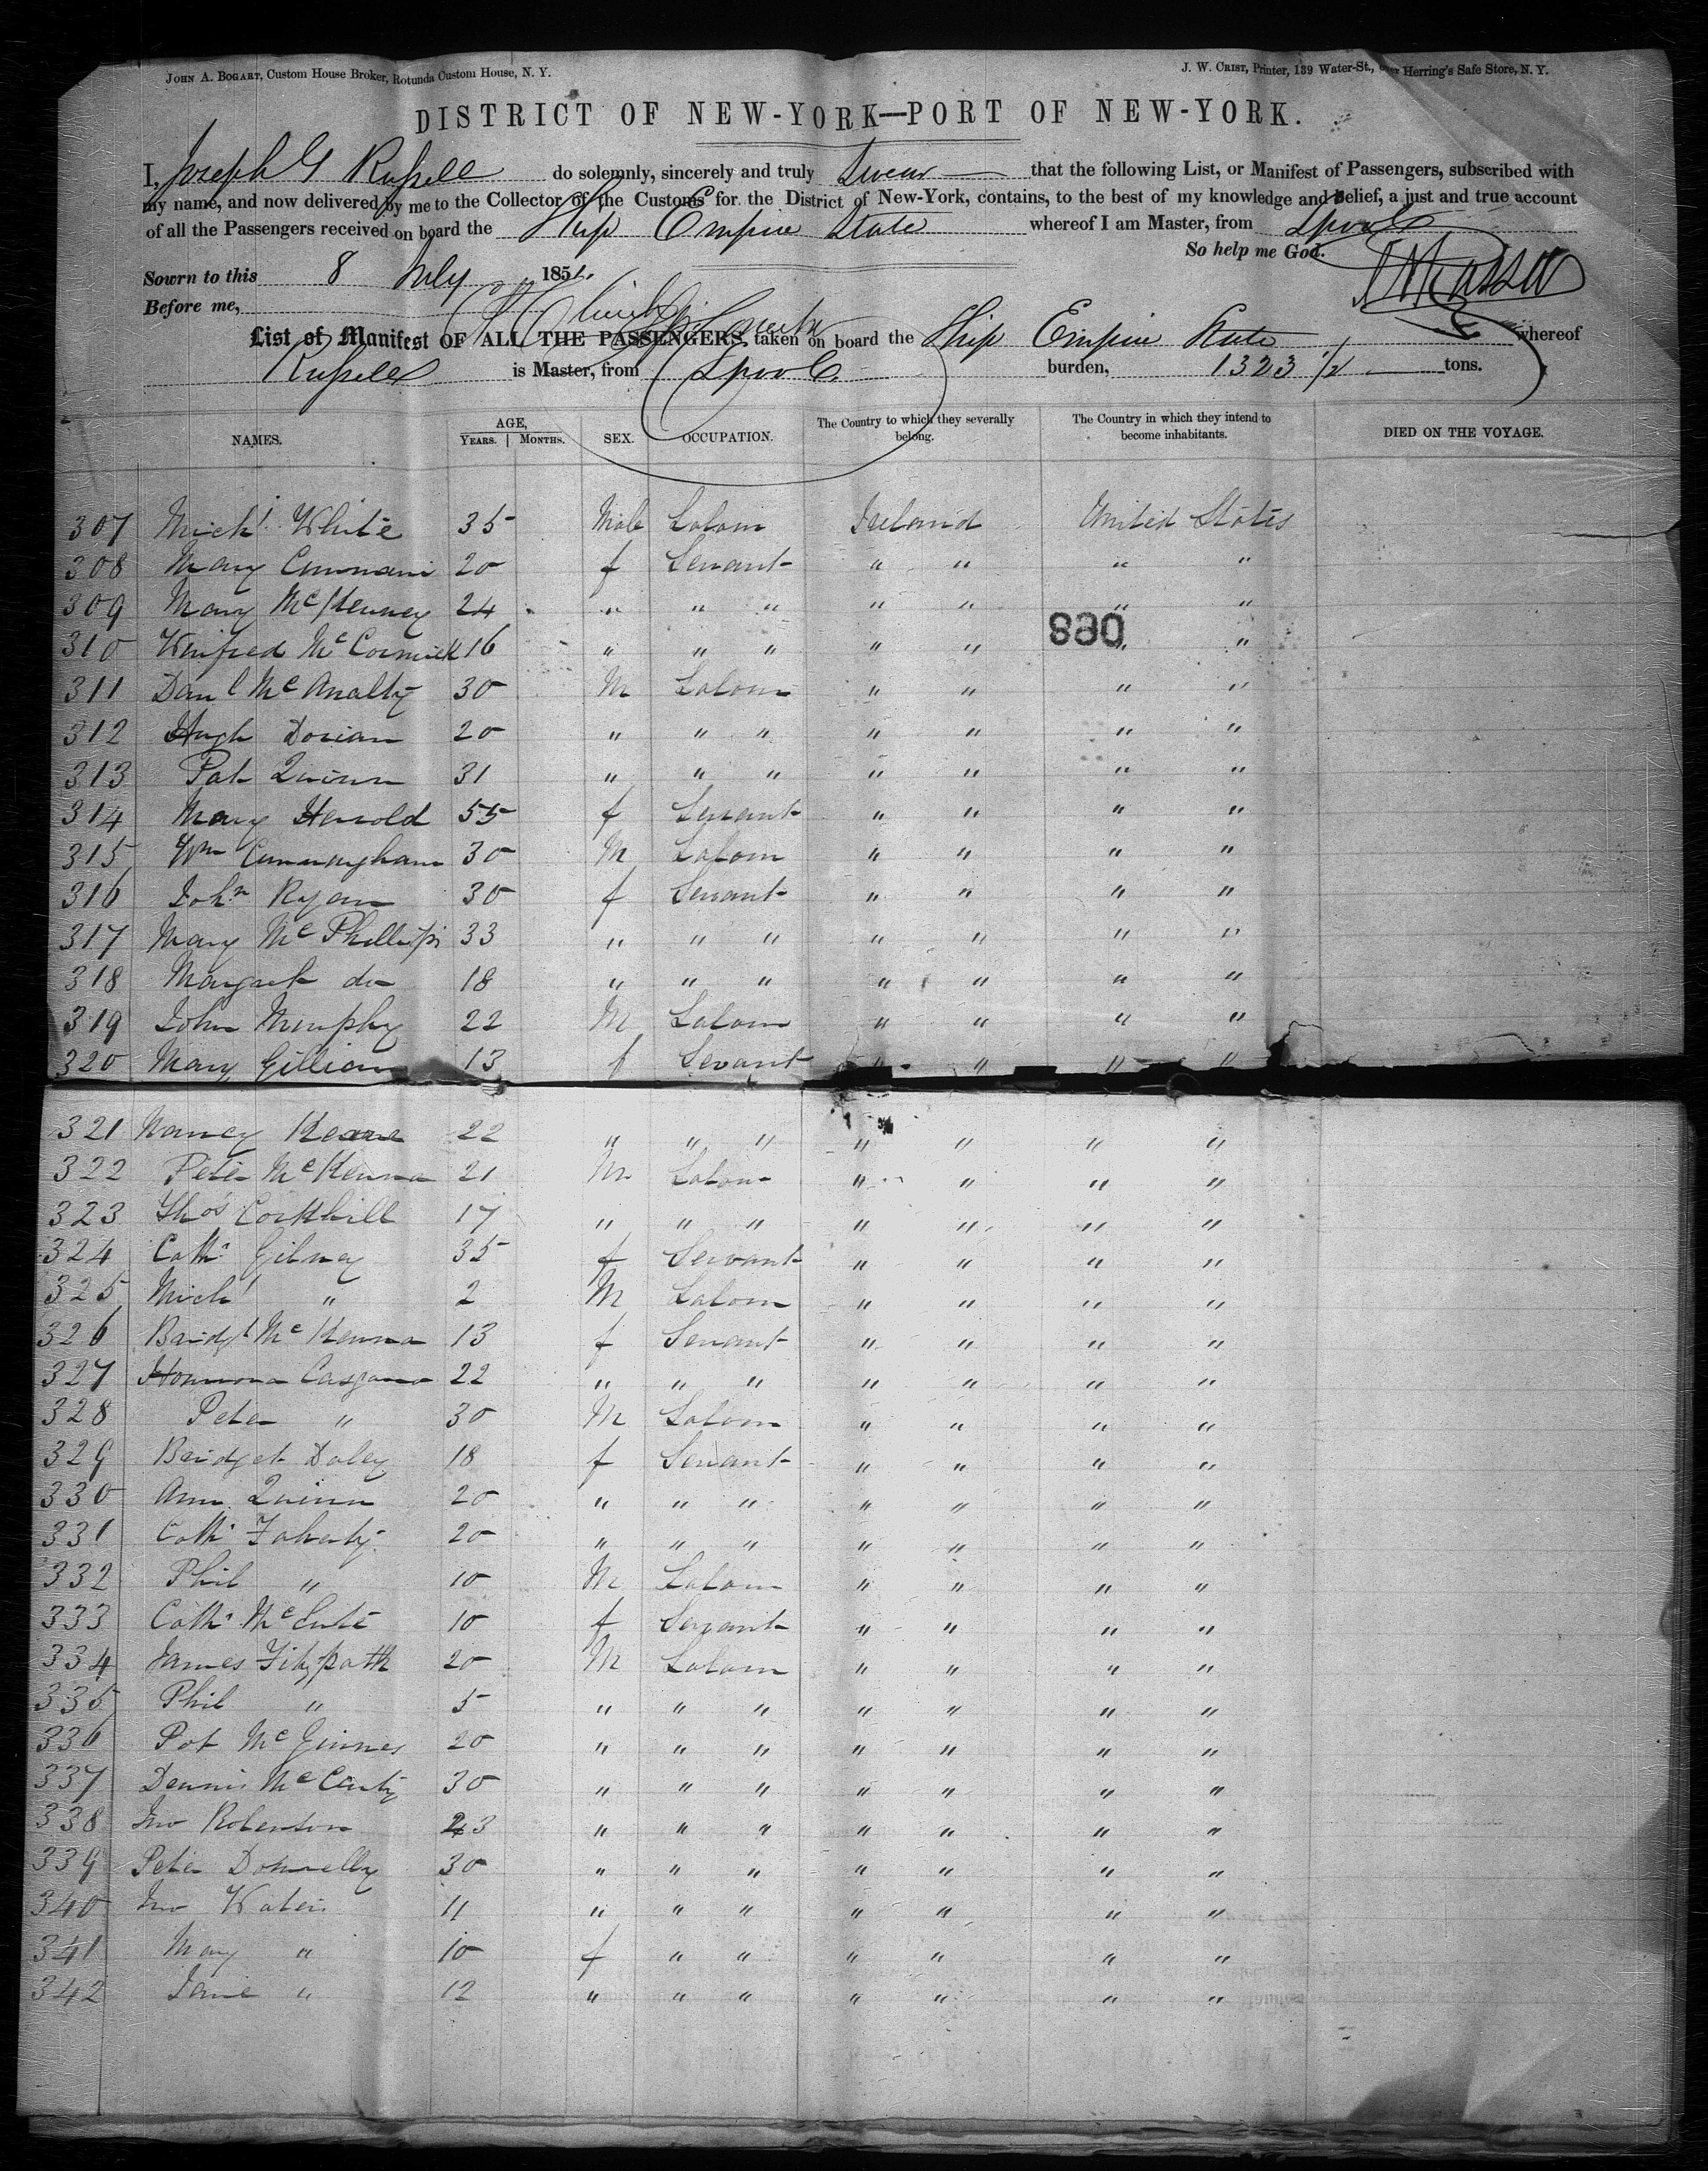 JOHN A. BOGART, Custom House Broker, Rotunda Custom House, N. Y.
J. W. CRIST, Printer, 139 Water-St., over Herring's Safe Store, N. Y.
DISTRICT OF NEW-YORK—PORT OF NEW-YORK.
I, Joseph G Russell do solemnly, sincerely and truly swear that the following List, or Manifest of Passengers, subscribed with
my name, and now delivered by me to the Collector of the Customs for the District of New-York, contains, to the best of my knowledge and belief, a just and true account
of all the Passengers received on board the Ship Empire State whereof I am Master, from Lpool
So help me God.
Sowrn to this 8 July 1851.
Before me,
List of Manifest OF ALL THE PASSENGERS taken on board the Ship Empire State whereof
Russell is Master, from Lpool burden, 1323 1/2 tons.
NAMES. AGE, YEARS. MONTHS. SEX. OCCUPATION. The Country to which they severally belong. The Country in which they intend to become inhabitants. DIED ON THE VOYAGE.
307 Mich'l White 35 Male Laborer Ireland United States
308 Mary 20 f Servant " " " "
309 Mary McKenney 24 " " " " " " "
090
310 Winifred McCormick 16 " " " " " " "
311 Danl McAnalty 30 M Laborer " " " "
312 Hugh Dorian 20 " " " " " " "
313 Pat Quinn 31 " " " " " " "
314 Mary Herrold 55 f Servant " " " "
315 Wm Cunnayham 30 M Laborer " " " "
316 John Ryan 30 f Servant " " " "
317 Mary McPhillips 33 " " " " " " "
318 Margaret do 18 " " " " " " "
319 John Murphy 22 M Laborer " " " "
320 Mary Gillian 13 f Servant " " " "
321 Nancy Keane 22 " " " " " " "
322 Peter McKenna 21 M Laborer " " " "
323 Thos Corkhill 17 " " " " " " "
324 Cathe Gilney 35 f Servant " " " "
325 Mich'l " 2 M Laborer " " " "
326 Bridgt McKenna 13 f Servant " " " "
327 22 " " " " " " "
328 Peter " 30 M Laborer " " " "
329 Bridget Daley 18 f Servant " " " "
330 Ann Quinn 20 " " " " " " "
331 Cathe Faherty 20 " " " " " " "
332 Phil " 10 M Laborer " " " "
333 Cathe 10 f Servant " " " "
334 James Fitzpatk 20 M Laborer " " " "
335 Phil " 5 " " " " " " "
336 Pat McGinnes 20 " " " " " " "
337 Dennis McCarty 30 " " " " " " "
338 Jno Robertson 23 " " " " " " "
339 Peter Donnelly 30 " " " " " " "
340 Jno Waters 11 " " " " " " "
341 Mary " 10 f " " " " " "
342 Jane " 12 " " " " " " "